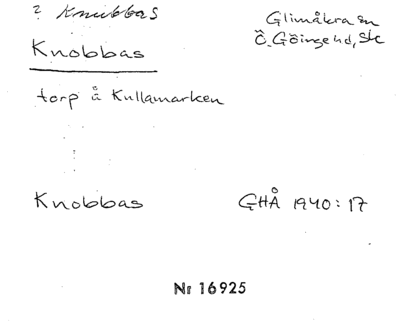 ? Knubbas
Glimåkra sn
Knobbas
Ö. Göinge hd, Sk
torp å Kullamarken
Knobbas
GHÅ 1940: 17
Nr 16925